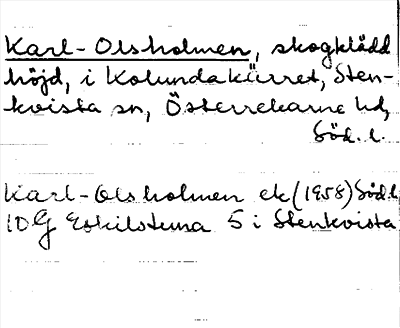 Karl-Olsholmen, skogklädd
höjd, i Kolundakärret, Sten-
kvista sn, Österrekarne hd,
Söd. l.
Karl-Olsholmen ek (1958) Söd.l.
10G Eskilstuna 5 i Stenkvista